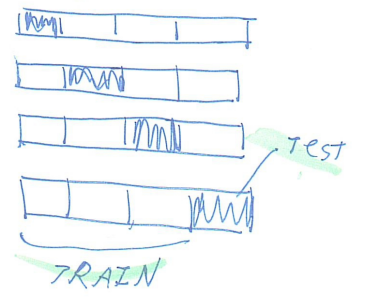 TEST
TRAIN